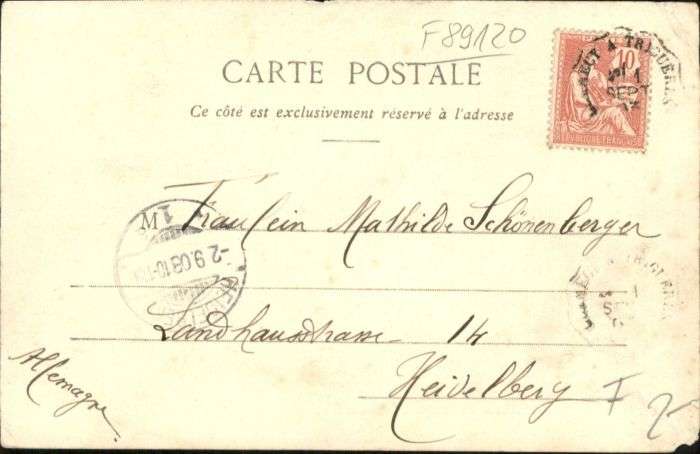 F89120
CARTE POSTALE
Ce côté est exclusivement réservé à l'adresse
10
RÉPUBLIQUE FRANÇAISE
A TRIGUÈRES
M Fräulein Mathilde Schönenberger
1
-2.9.03.10-11
Landhausstrasse 14
Heidelberg
Allemagne
I
2